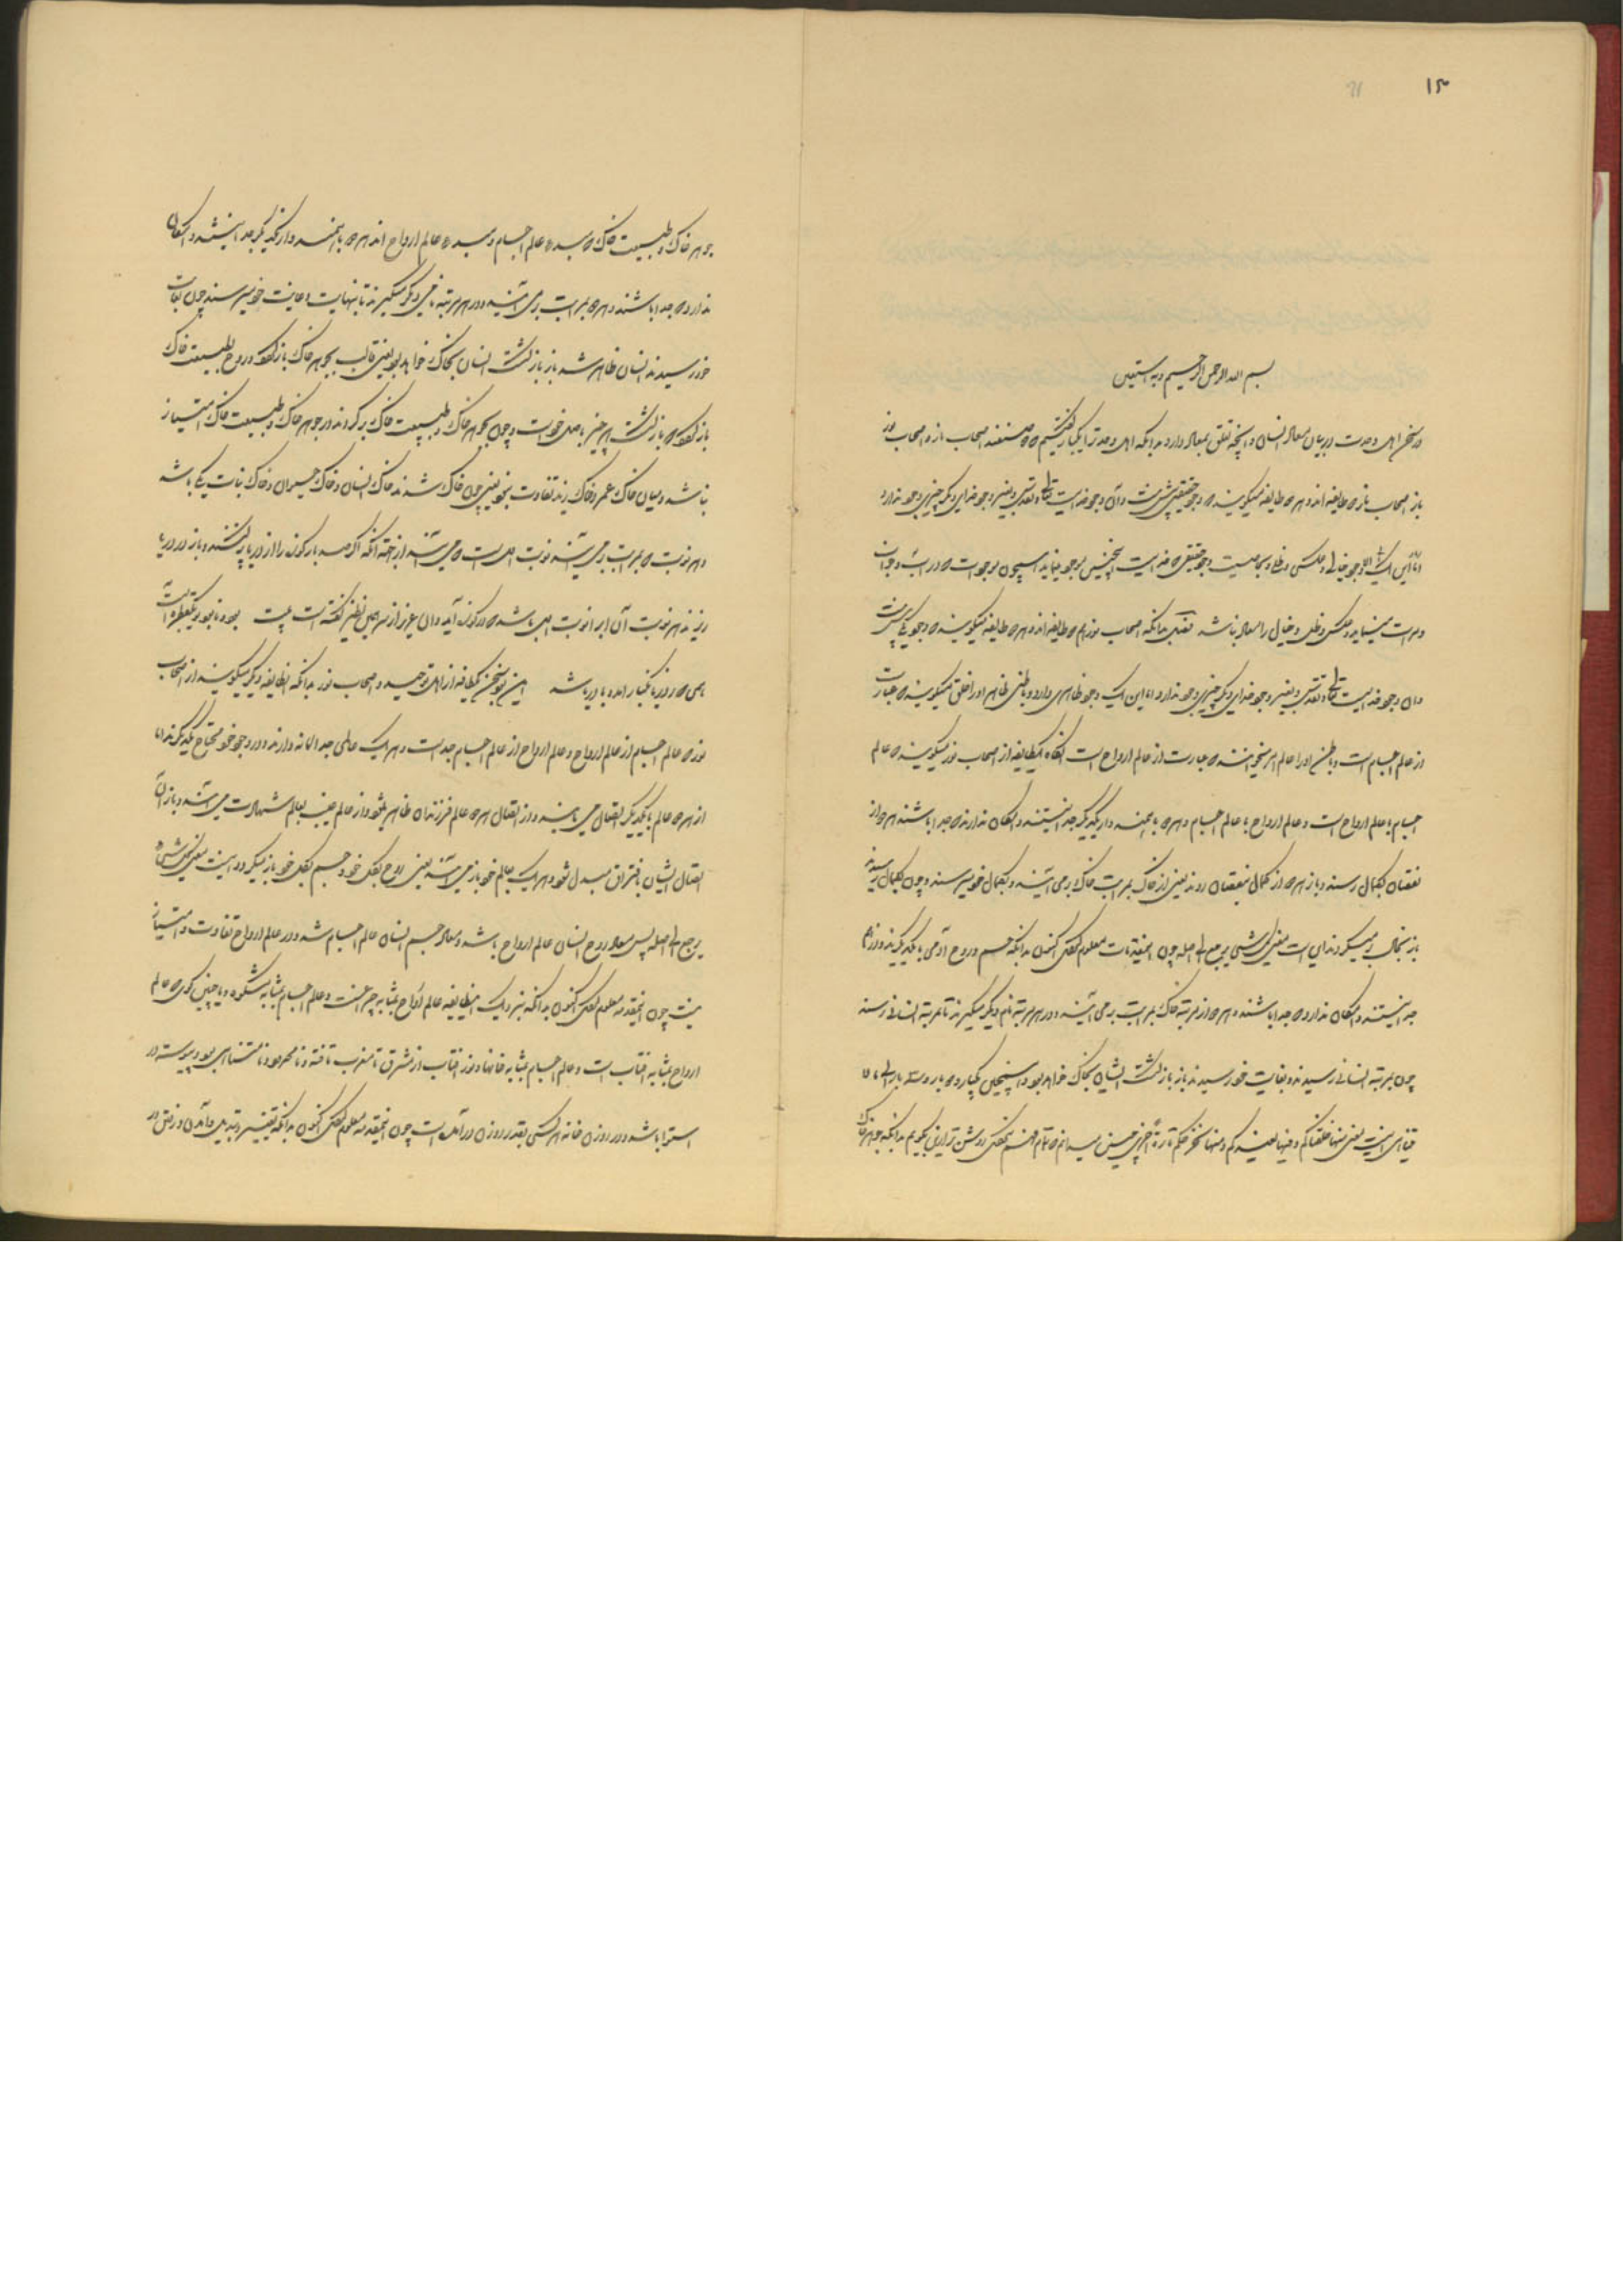 ۱۳
بسم الله الرحمن الرحیم وبه نستعین
در سخن اهل وحدت در بیان معاد انسان و آنچه تعلق بمعاد دارد بدانکه اهل وحدت صنفند اصحاب نار و اصحاب نور
باز اصحاب نار طایفه اند میگویند که وجود حقیقی یکی بیش نیست و آن وجود خدایست تعالی و تقدس و بغیر وجود خدای دیگر چیزی وجود ندارد
اما این وجود خیالی و عکسی و ظلی و بخاصیت وجود حقیقی که خداست اینچنین موجود مینماید همچون موجودات که در آب
و مرآت مینماید و عکس و ظل و خیال را معاد نباشد بدانکه اصحاب نور هم دو طایفه اند طایفه میگویند که وجود یکی بیش نیست
و آن وجود خدایست تعالی و تقدس و بغیر وجود خدای دیگر چیزی وجود ندارد اما این یک وجود ظاهری دارد و باطنی ظاهر او را خلق میگویند که عبارت
از عالم اجسام است و باطن او را عالم امر میخوانند که عبارت از عالم ارواح است آنگاه یکطایفه از اصحاب نور میگویند که عالم
اجسام با عالم ارواح است و عالم ارواح با عالم اجسام و هر دو با همند و از یکدیگر جدا نیستند و امکان ندارند که جدا باشند هر دو از
نقصان بکمال رسند و باز هر دو از کمال بنقصان روند یعنی از خاک بمراتب بر می آیند و بکمال خود میرسند و چون بکمال رسیدند
باز بخاک بر میگردند این است معنی کل شیء یرجع الی اصله چون این مقدمات معلوم کردی اکنون بدانکه جسم و روح آدمی با یکدیگرند و از هم
جدا نیستند و امکان ندارد که جدا باشند و هر دو از مرتبه خاک بمراتب بر می آیند و در هر مرتبه نام دیگر میگیرند تا بمرتبه انسانی رسند
چون بمرتبه انسانی رسیدند و بغایت خود رسیدند باز بازگشت ایشان بخاک خواهد بود و همچنین یکبار و دو بار و سه بار الی ما لا
یتناهی اینست معنی منها خلقناکم و فیها نعیدکم و منها نخرجکم تارة اخری چنین میدانم که تمام فهم نکردی روشن تر از این بگویم بدانکه جوهر خاک
جوهر خاک و طبیعت خاک که مبدء عالم اجسام و مبدء عالم ارواح اند هر دو با همند و از یکدیگر جدا نیستند و امکان
ندارد که جدا باشند و هر دو بمراتب بر می آیند و در هر مرتبه نامی دیگر میگیرند تا بنهایت و غایت خود میرسند چون بغایت
خود رسیدند انسان ظاهر شد باز بازگشت انسان بخاک خواهد بود یعنی قالب بجوهر خاک بازگردد و روح بطبیعت خاک
بازگردد که بازگشت هر چیز باصل خود است و چون بجوهر خاک و طبیعت خاک برگردند در جوهر خاک و طبیعت خاک امتیاز
نباشد و میان خاک عمرو و خاک زید تفاوت نبود یعنی چون خاک شدند خاک انسان و خاک حیوان و خاک نبات یکی باشد
و هر نوبت که بمراتب بر می آیند نوبت اول است که می آیند از جهت آنکه اگر صد بار کوزه را از دریا پر کنند و باز در دریا
ریزند هر نوبت آن آب را نوبت اول باشد که در کوزه آید و آن عزیز از سر همین نظر گفته است بیت بود و نابود تو یکقطره آبست
همی که از دریا بکنار آمده با دریا شد این بود سخن یکطایفه از اهل توحید و اصحاب نور بدانکه آن طایفه دیگر میگویند از اصحاب
نور که عالم اجسام از عالم ارواح و عالم ارواح از عالم اجسام جداست و هر یک عالمی جداگانه دارند و در وجود خود محتاج یکدیگرند اما
از هر دو عالم با یکدیگر اتصال می یابند و از اتصال هر دو عالم فرزندان ظاهر میشود و از عالم غیب بعالم شهادت می آیند و باز آن
اتصال ایشان بافتراق مبدل شود و هر یک بعالم خود باز می آیند یعنی روح بکل خود و جسم بکل خود باز میگردد اینست معنی کل شیء
یرجع الی اصله پس معاد روح انسان عالم ارواح باشد و معاد جسم انسان عالم اجسام باشد و در عالم ارواح تفاوت و امتیاز
نیست چون این مقدمه معلوم کردی اکنون بدانکه بنزدیک این طایفه عالم ارواح بمثابه چراغست و عالم اجسام بمثابه مشکوة و یا چنین گوی که عالم
ارواح بمثابه آفتاب است و عالم اجسام بمثابه خانها و نور آفتاب از مشرق تا مغرب تافته و نامحدود و نامتناهی بود و پیوسته در
استوا باشد و در روزن خانه هر کسی بقدر روزن در آمده است چون این مقدمه معلوم کردی اکنون بدانکه تغییر و تبدیل و آمدن و رفتن در